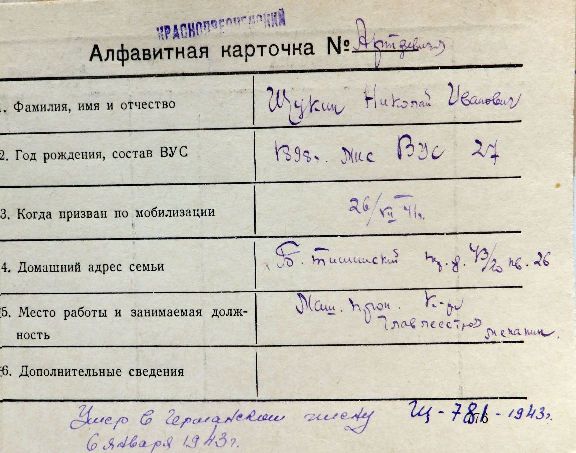 КРАСНОПРЕСНЕНСКИЙ
Алфавитная карточка №
1. Фамилия, имя и отчество Щукин Николай Иванович
2. Год рождения, состав ВУС 1898. мнс ВУС 27
3. Когда призван по мобилизации 26/VII 41г.
4. Домашний адрес семьи Б. Тишинский п. д. 43/20 кв. 26
5. Место работы и занимаемая долж-
ность
механик.
6. Дополнительные сведения
Умер в Германском плену Щ-781-1943г.
6 января 1943г.